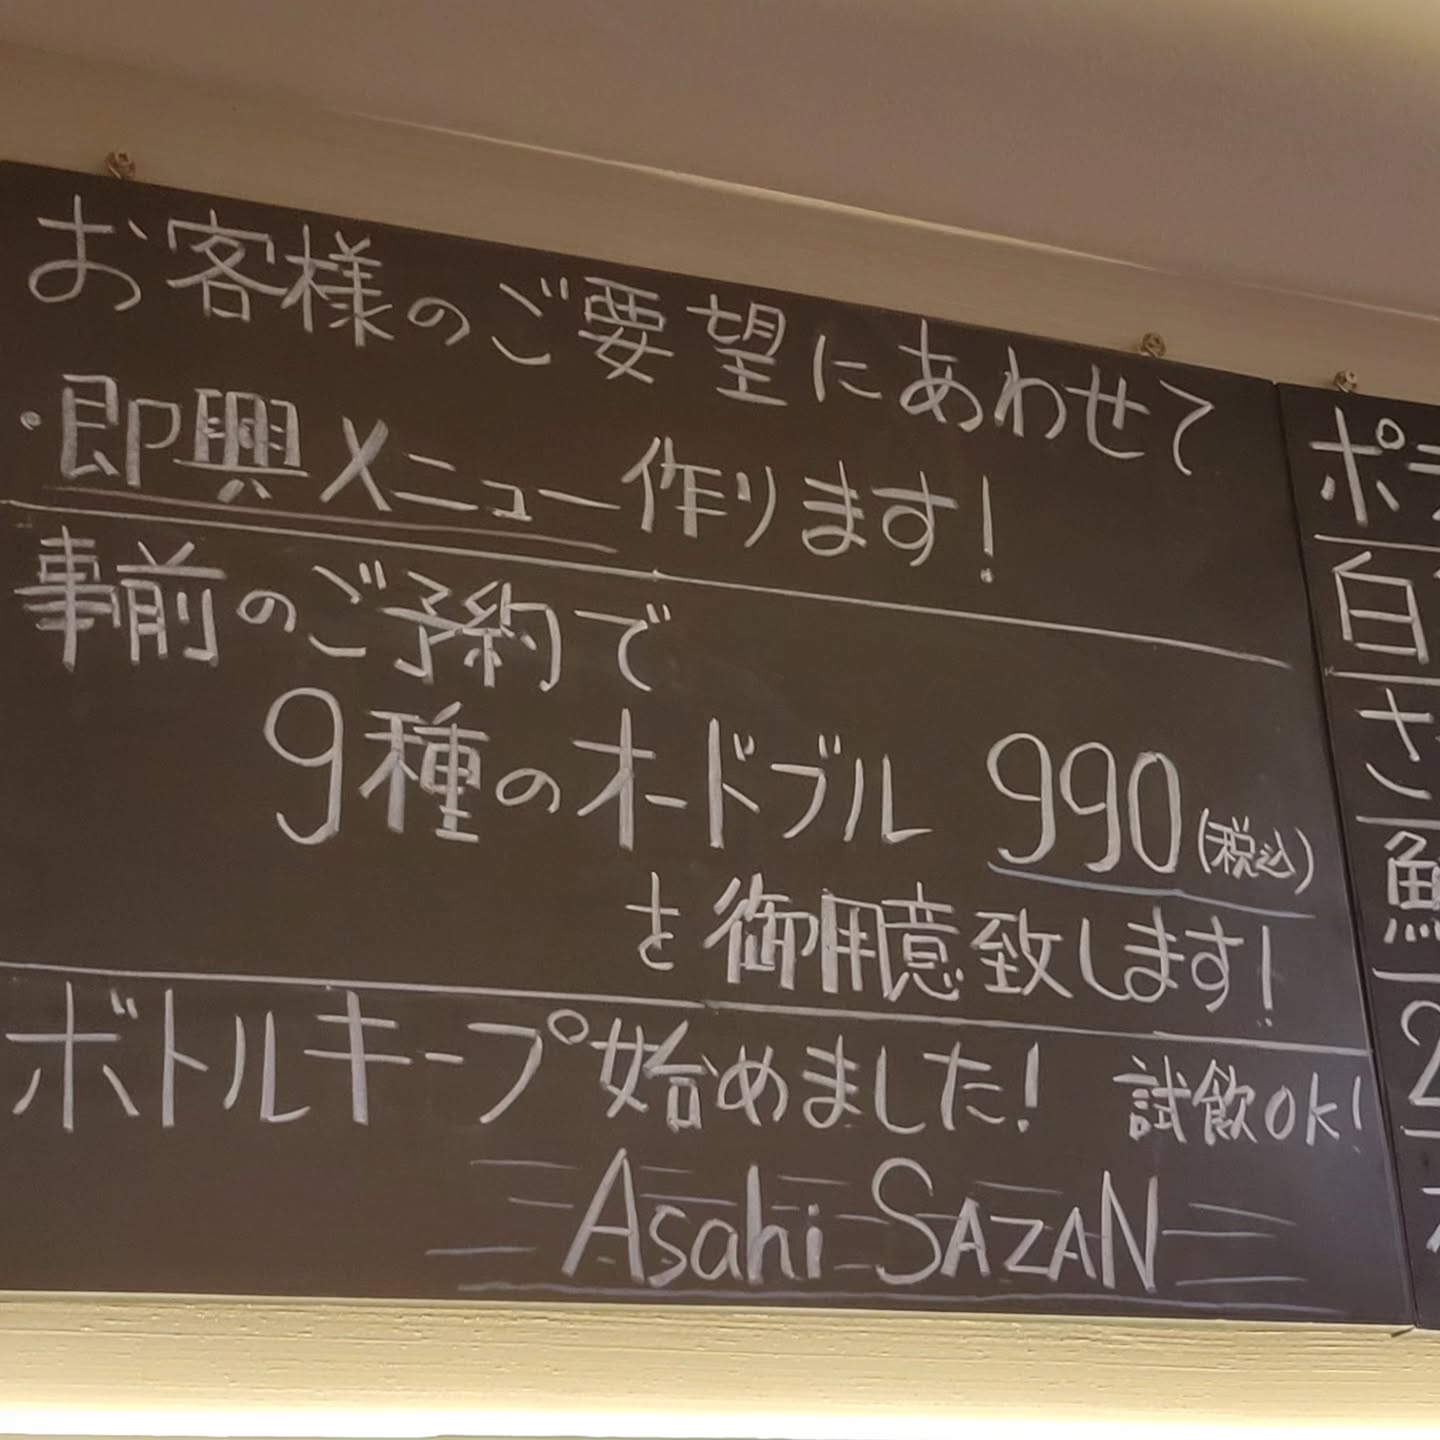 お客様のご要望にあわせて
・即興メニュー作ります!
事前のご予約で
9種のオードブル 990(税込)
を御用意致します!
ボトルキープ始めました! 試飲OK!
Asahi SAZAN
ポ
白
さ
魚
2